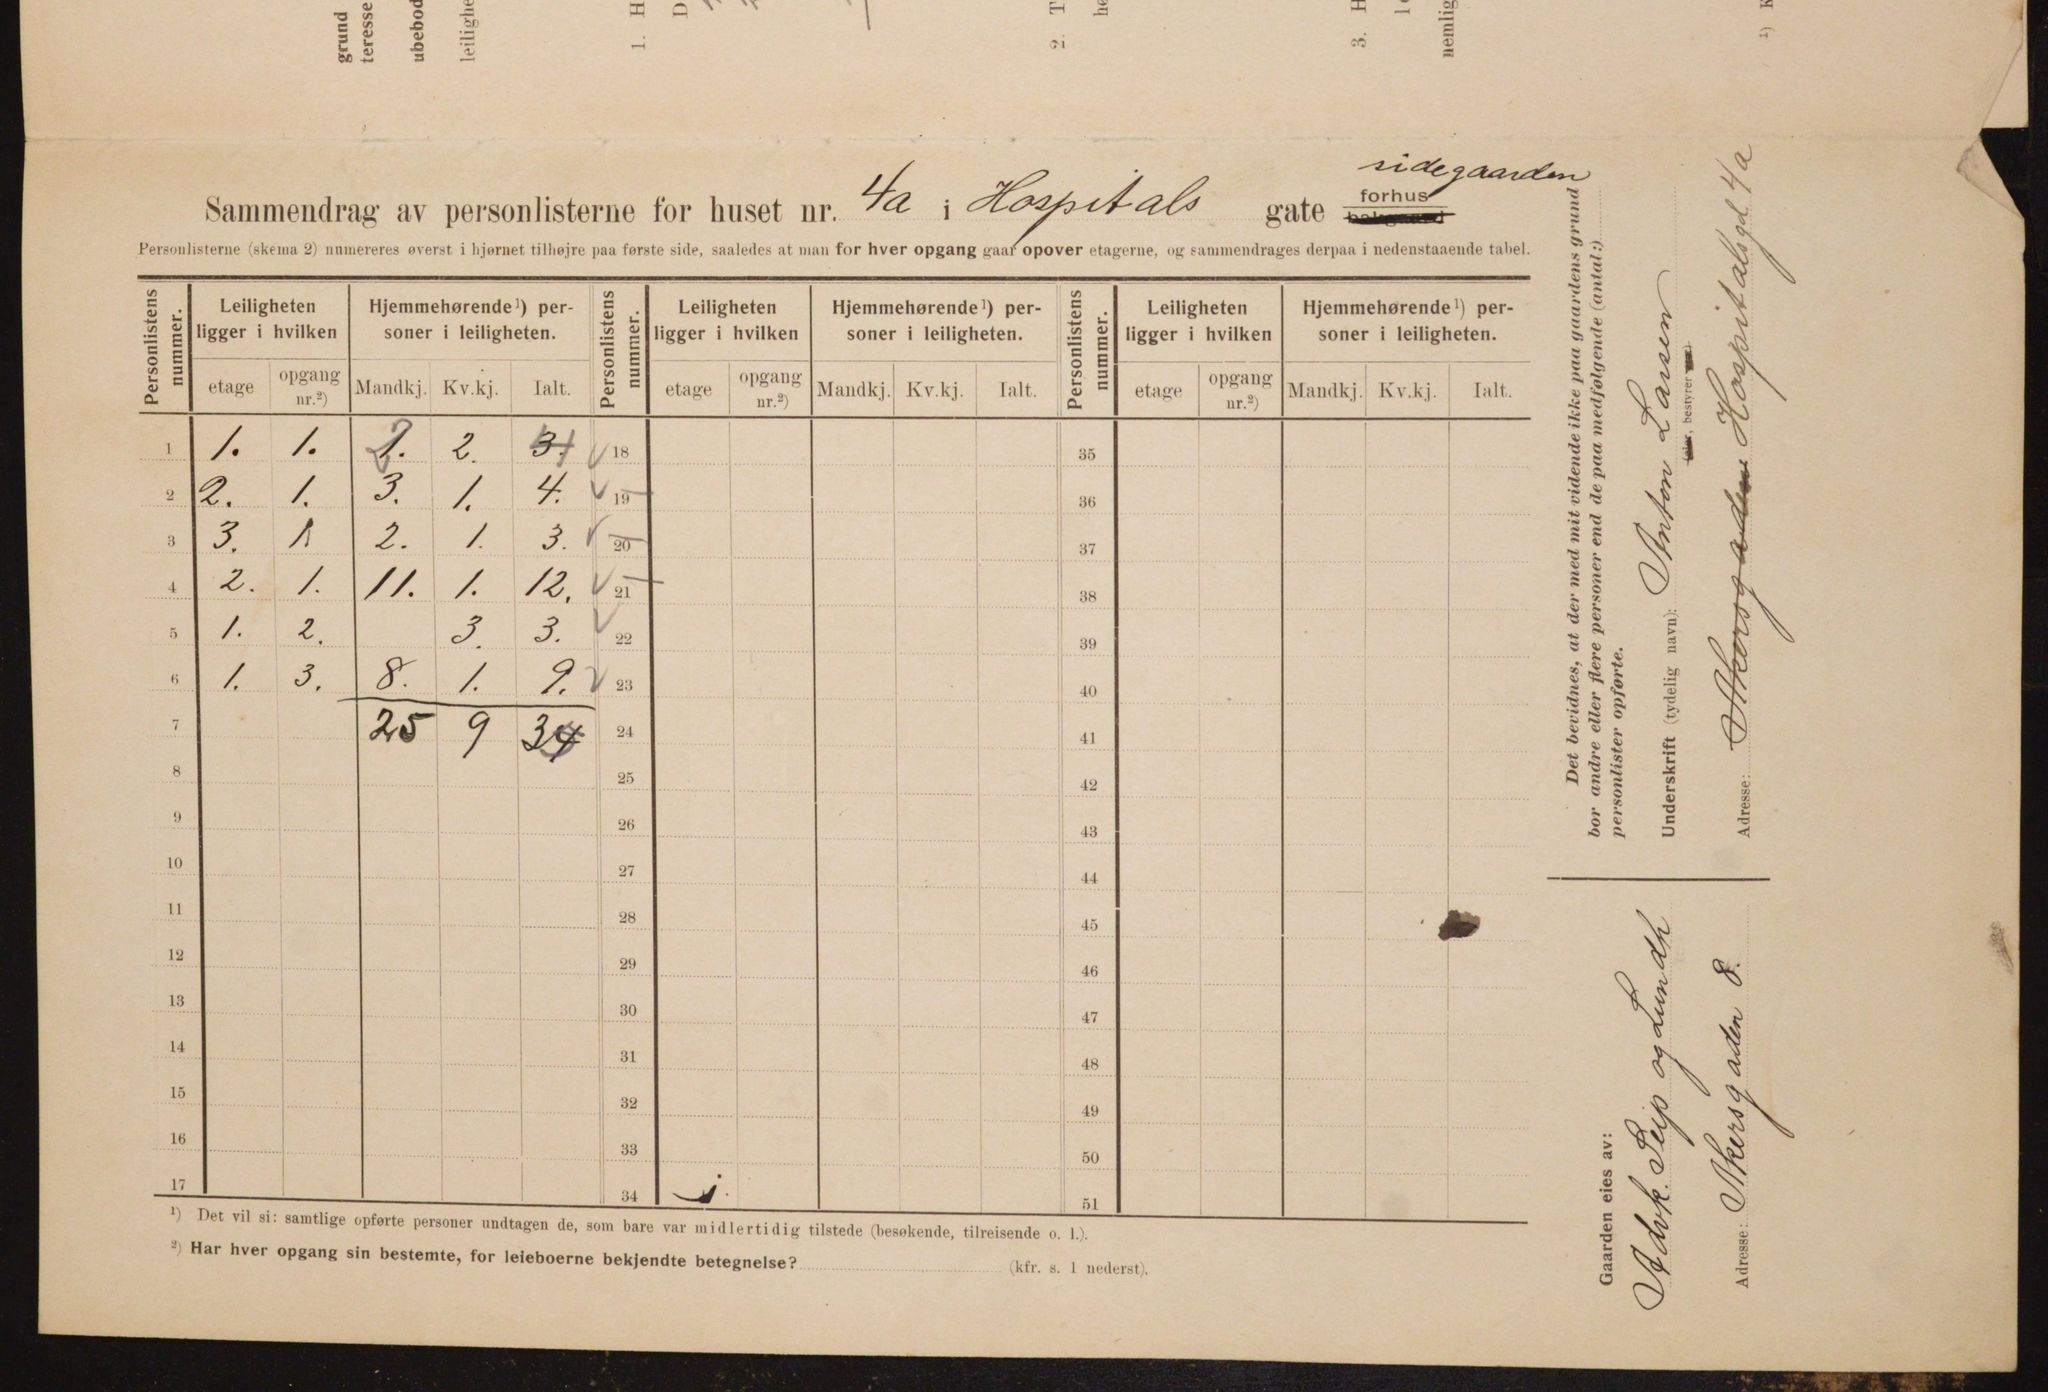 grund
teresse
ubebod
leilighe
1. H
D
2. T
he
3. H
nemlig
sidegaarden
Sammendrag av personlisterne for huset nr. 4a i Hospitals gate forhus
bakgaard
Personlisterne (skema 2) numereres øverst i hjørnet tilhøjre paa første side, saaledes at man for hver opgang gaar opover etagerne, og sammendrages derpaa i nedenstaaende tabel.
Personlistens nummer. Leiligheten ligger i hvilken Hjemmehørende¹) personer i leiligheten. Personlistens nummer. Leiligheten ligger i hvilken Hjemmehørende¹) personer i leiligheten. Personlistens nummer. Leiligheten ligger i hvilken Hjemmehørende¹) personer i leiligheten.
etage opgang nr.²) Mandkj. Kv.kj. Ialt. etage opgang nr.²) Mandkj. Kv.kj. Ialt. etage opgang nr.²) Mandkj. Kv.kj. Ialt.
1 1. 1. 1. 2. 3. 18 35
2 2. 1. 3. 1. 4. 19 36
3 3. 1 2. 1. 3. 20 37
4 2. 1. 11. 1. 12. 21 38
5 1. 2. 3. 3. 22 39
6 1. 3. 8. 1. 9. 23 40
7 25 9 34 24 41
8 25 42
9 26 43
10 27 44
11 28 45
12 29 46
13 30 47
14 31 48
15 32 49
16 33 50
17 34 51
¹) Det vil si: samtlige opførte personer undtagen de, som bare var midlertidig tilstede (besøkende, tilreisende o. l.).
²) Har hver opgang sin bestemte, for leieboerne bekjendte betegnelse? (kfr. s. 1 nederst).
Det bevidnes, at der med mit vidende ikke paa gaardens grund
bor andre eller flere personer end de paa medfølgende (antal:)
personlister opførte.
Underskrift (tydelig navn): Anton Larsen
(eier, bestyrer
Adresse: Akersgaden Hospitalsgd 4a
Gaarden eies av:
Advk. Seip og Lundh
Adresse: Akersgaden 8.